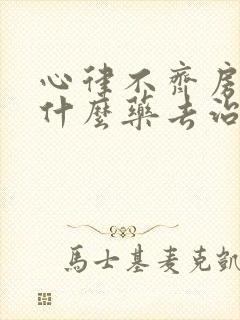 心律不齊房
什麼藥去治
馬士基麥克凱